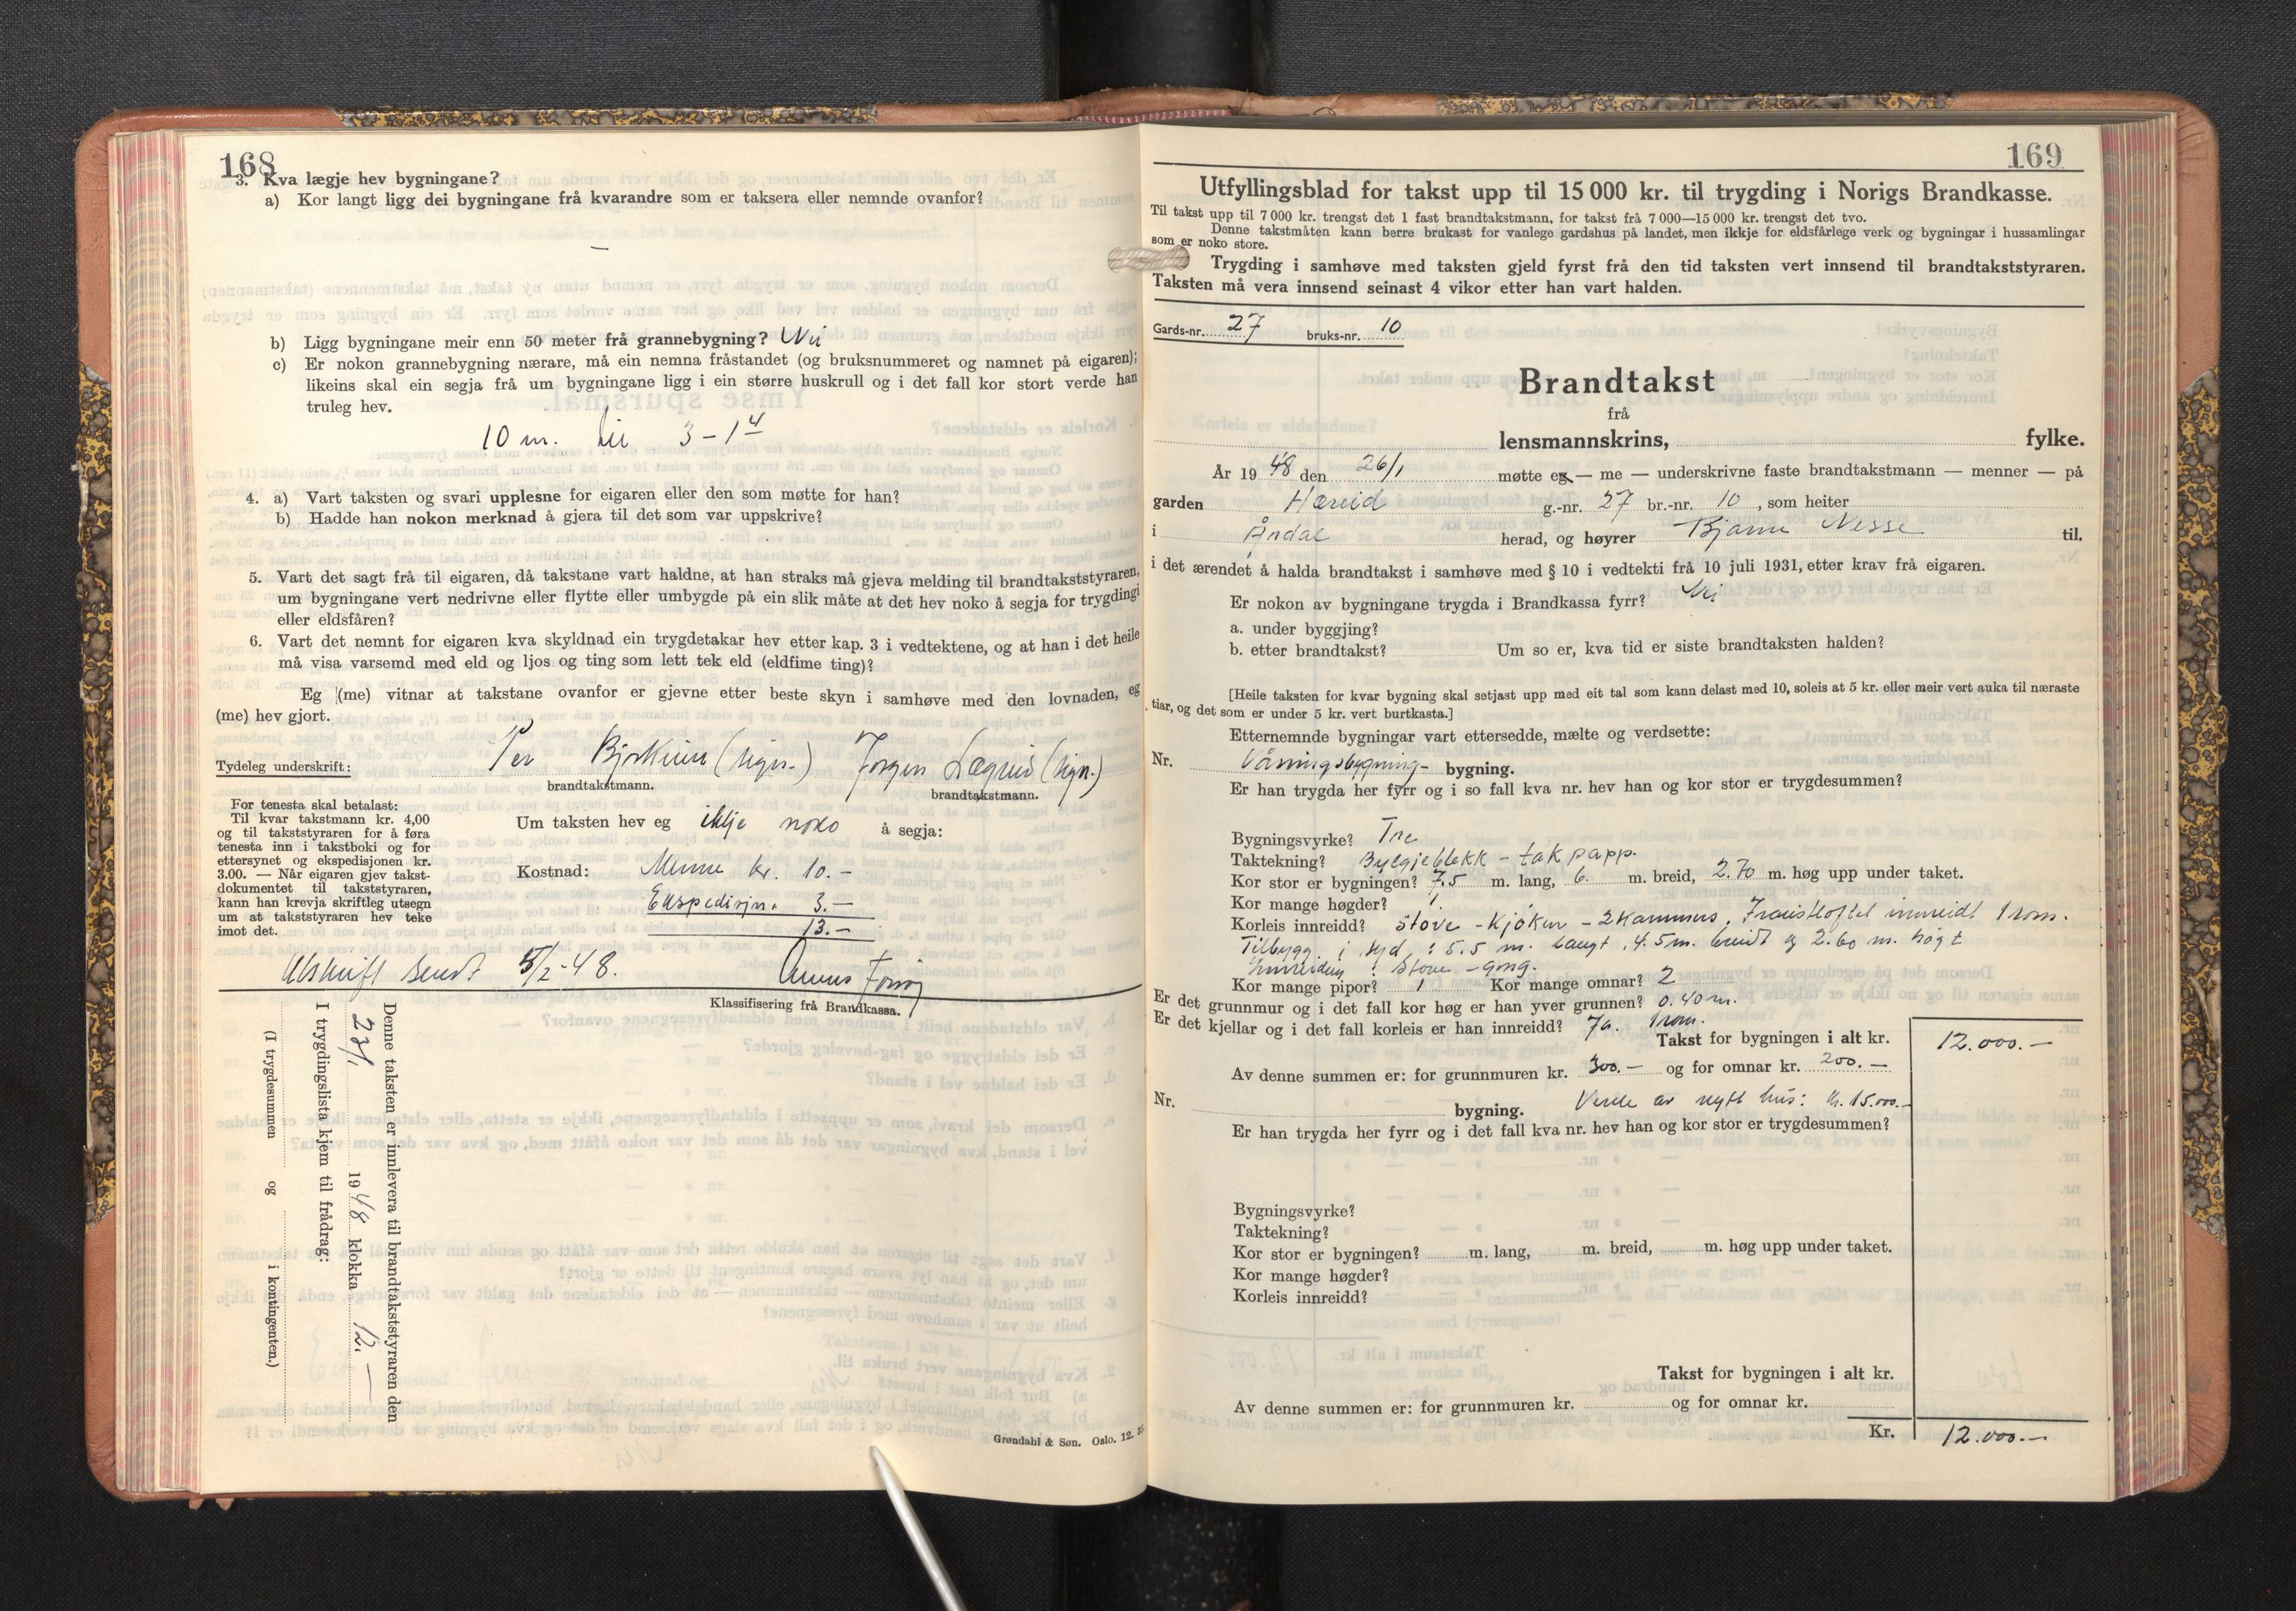 168
3. Kva lægje hev bygningane?
a) Kor langt ligg dei bygningane frå kvarandre som er taksera eller nemnde ovanfor?
—
b) Ligg bygningane meir enn 50 meter frå grannebygning? Nei
c) Er nokon grannebygning nærare, må ein nemna fråstandet (og bruksnummeret og namnet på eigaren);
likeins skal ein segja frå um bygningane ligg i ein større huskrull og i det fall kor stort verde han
truleg hev.
10 m. til 3 - 14
4. a) Vart taksten og svari upplesne for eigaren eller den som møtte for han?
b) Hadde han nokon merknad å gjera til det som var uppskrive?
5. Vart det sagt frå til eigaren, då takstane vart haldne, at han straks må gjeva melding til brandtakststyraren,
um bygningane vert nedrivne eller flytte eller umbygde på ein slik måte at det hev noko å segja for trygdingi
eller eldsfåren?
6. Vart det nemnt for eigaren kva skyldnad ein trygdetakar hev etter kap. 3 i vedtektene, og at han i det heile
må visa varsemd med eld og ljos og ting som lett tek eld (eldfime ting)?
Eg (me) vitnar at takstane ovanfor er gjevne etter beste skyn i samhøve med den lovnaden, eg
(me) hev gjort.
Tydeleg underskrift: Per Bjørkum (sign.) Jørgen Lægreid (sign.)
brandtakstmann. brandtakstmann.
For tenesta skal betalast:
Til kvar takstmann kr. 4,00
og til takststyraren for å føra
tenesta inn i takstboki og for
ettersynet og ekspedisjonen kr.
3.00. — Når eigaren gjev takst-
dokumentet til takststyraren,
kann han krevja skriftleg utsegn
um at takststyraren hev teke
imot det.
Um taksten hev eg ikkje noko å segja:
Kostnad: Menne kr. 10.-
Ekspedisjn. 3.—
13.—
Utskrift sendt 5/2-48.
Klassifisering frå Brandkassa.
Denne taksten er innlevera til brandtakststyraren den
23/1 1948 klokka 12.—
I trygdingslista kjem til frådrag:
(I trygdesummen og i kontingenten.)
Grøndahl & Søn. Oslo. 12.
169
Utfyllingsblad for takst upp til 15 000 kr. til trygding i Norigs Brandkasse.
Til takst upp til 7 000 kr. trengst det 1 fast brandtakstmann, for takst frå 7 000—15 000 kr. trengst det tvo.
Denne takstmåten kann berre brukast for vanlege gardshus på landet, men ikkje for eldsfårlege verk og bygningar i hussamlingar
som er noko store.
Trygding i samhøve med taksten gjeld fyrst frå den tid taksten vert innsend til brandtakststyraren.
Taksten må vera innsend seinast 4 vikor etter han vart halden.
Gards-nr. 27 bruks-nr. 10
Brandtakst
frå
lensmannskrins, fylke.
År 1948 den 26/1 møtte eg — me — underskrivne faste brandtakstmann — menner — på
garden Hæreid g.-nr. 27 br.-nr. 10, som heiter
i Årdal herad, og høyrer Bjarne Nesse til.
i det ærendet å halda brandtakst i samhøve med § 10 i vedtekti frå 10 juli 1931, etter krav frå eigaren.
Er nokon av bygningane trygda i Brandkassa fyrr? Nei
a. under byggjing?
b. etter brandtakst? Um so er, kva tid er siste brandtaksten halden?
[Heile taksten for kvar bygning skal setjast upp med eit tal som kann delast med 10, soleis at 5 kr. eller meir vert auka til næraste
tiar, og det som er under 5 kr. vert burtkasta.]
Etternemnde bygningar vart ettersedde, mælte og verdsette:
Nr. Våningsbygning- bygning.
Er han trygda her fyrr og i so fall kva nr. hev han og kor stor er trygdesummen?
Bygningsvyrke? Tre
Taktekning? Bylgjeblekk - tak papp.
Kor stor er bygningen? 7.5 m. lang, 6. m. breid, 2.70 m. høg upp under taket.
Kor mange høgder? 1
Korleis innreidd? Stove - kjøken - 2 kammers. Framloftet innreidt 1 rom.
Tilbygg i syd: 5.5 m. langt, 4.5 m. breidt og 2.60 m. høgt
Innreiding: Stove - gang.
Kor mange pipor? 1 Kor mange omnar? 2
Er det grunnmur og i det fall kor høg er han yver grunnen? 0.40 m.
Er det kjellar og i det fall korleis er han innreidd? Ja. 1 rom.
Takst for bygningen i alt kr. 12.000.—
Av denne summen er: for grunnmuren kr. 300.— og for omnar kr. 200.—
Nr. bygning. Verde av nytt hus: kr. 15.000.-
Er han trygda her fyrr og i det fall kva nr. hev han og kor stor er trygdesummen?
Bygningsvyrke?
Taktekning?
Kor stor er bygningen? m. lang, m. breid, m. høg upp under taket.
Kor mange høgder?
Korleis innreidd?
Takst for bygningen i alt kr.
Av denne summen er: for grunnmuren kr. og for omnar kr.
Kr. 12.000.—